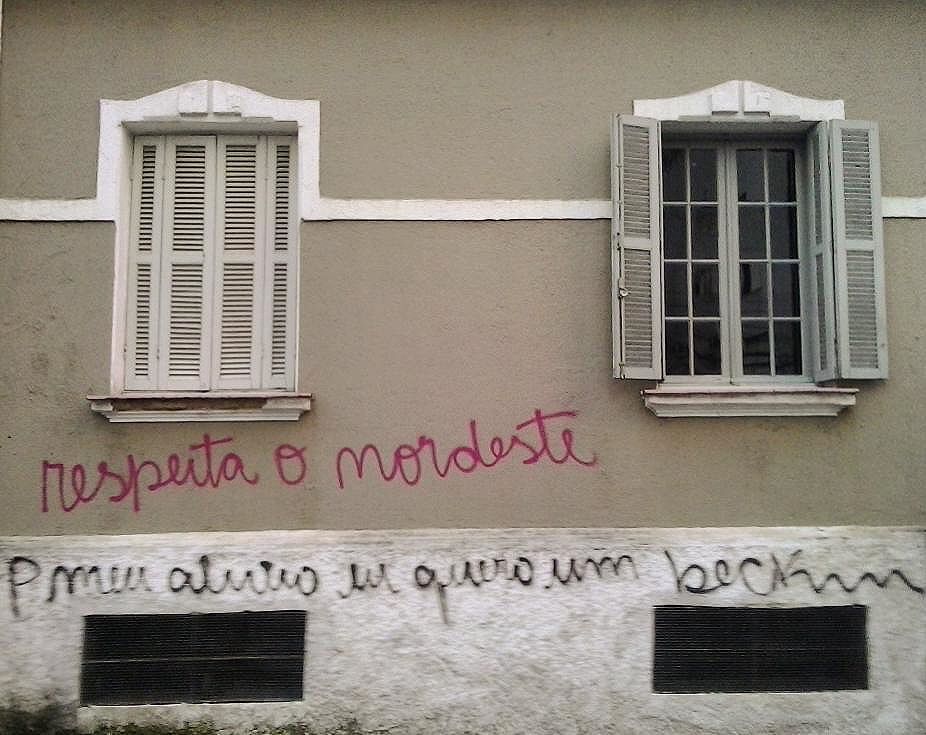 respeita o nordeste
P meu alivio eu quero um beckinn